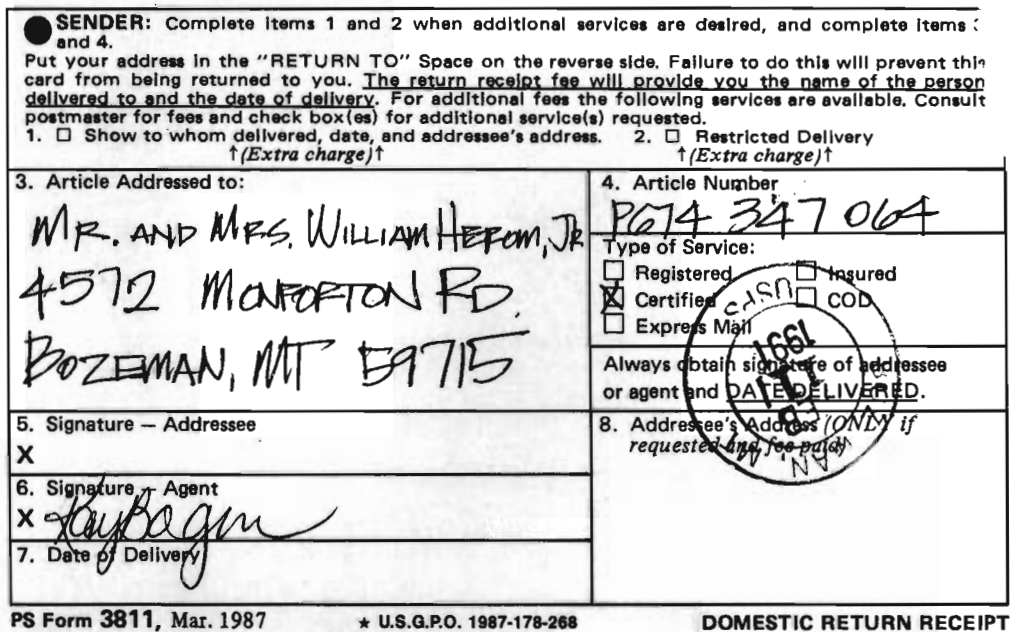 SENDER: Complete items 1 and 2 when additional services are desired, and complete items
and 4.
Put your address in the "RETURN TO" Space on the reverse side. Failure to do this will prevent this
card from being returned to you. The return receipt fee will provide you the name of the person
delivered to and the date of delivery. For additional fees the following services are available. Consult
postmaster for fees and check box(es) for additional service(s) requested.
1. ☐ Show to whom delivered, date, and addressee's address. 2. ☐ Restricted Delivery
↑(Extra charge)↑ ↑(Extra charge)↑
3. Article Addressed to:
MR. AND MRS. WILLIAM HEROM, JR
4572 MONFORTON RD.
BOZEMAN, MT 59715
4. Article Number
P674 347 064
Type of Service:
☐ Registered ☐ Insured
☒ Certified ☐ COD
☐ Express Mail
Always obtain signature of addressee
or agent and DATE DELIVERED.
5. Signature — Addressee
X
6. Signature — Agent
X Kay
7. Date of Delivery
8. Addressee's Address (ONLY if
requested and fee paid)
USPS
1991
FEB
PS Form 3811, Mar. 1987 ★ U.S.G.P.O. 1987-178-268 DOMESTIC RETURN RECEIPT